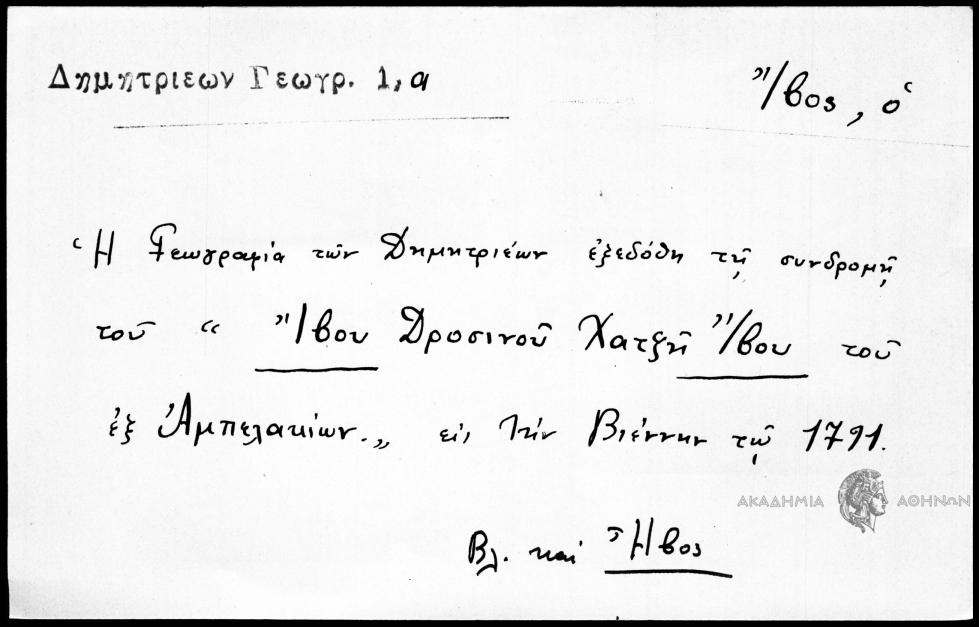 Δημητριεων Γεωγρ. 1,α
Ἴβος, ὁ
Ἡ Γεωγραφία τῶν Δημητριέων ἐξεδόθη τῇ συνδρομῇ
τοῦ “ Ἴβου Δροσινοῦ Χατζῆ Ἴβου τοῦ
ἐξ Ἀμπελακίων.„ εἰς τὴν Βιέννην τῷ 1791.
ΑΚΑΔΗΜΙΑ ΑΘΗΝΩΝ
Βλ. καὶ Ἦβος